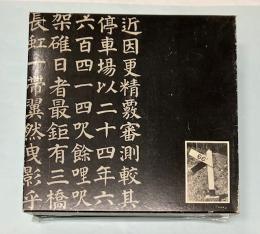 近因更精覈審測較其
停車場以二十四年六
六百四一四呎餘哩呎
架確日者最鉅有三橋
長虹一帶翼然曳影乎